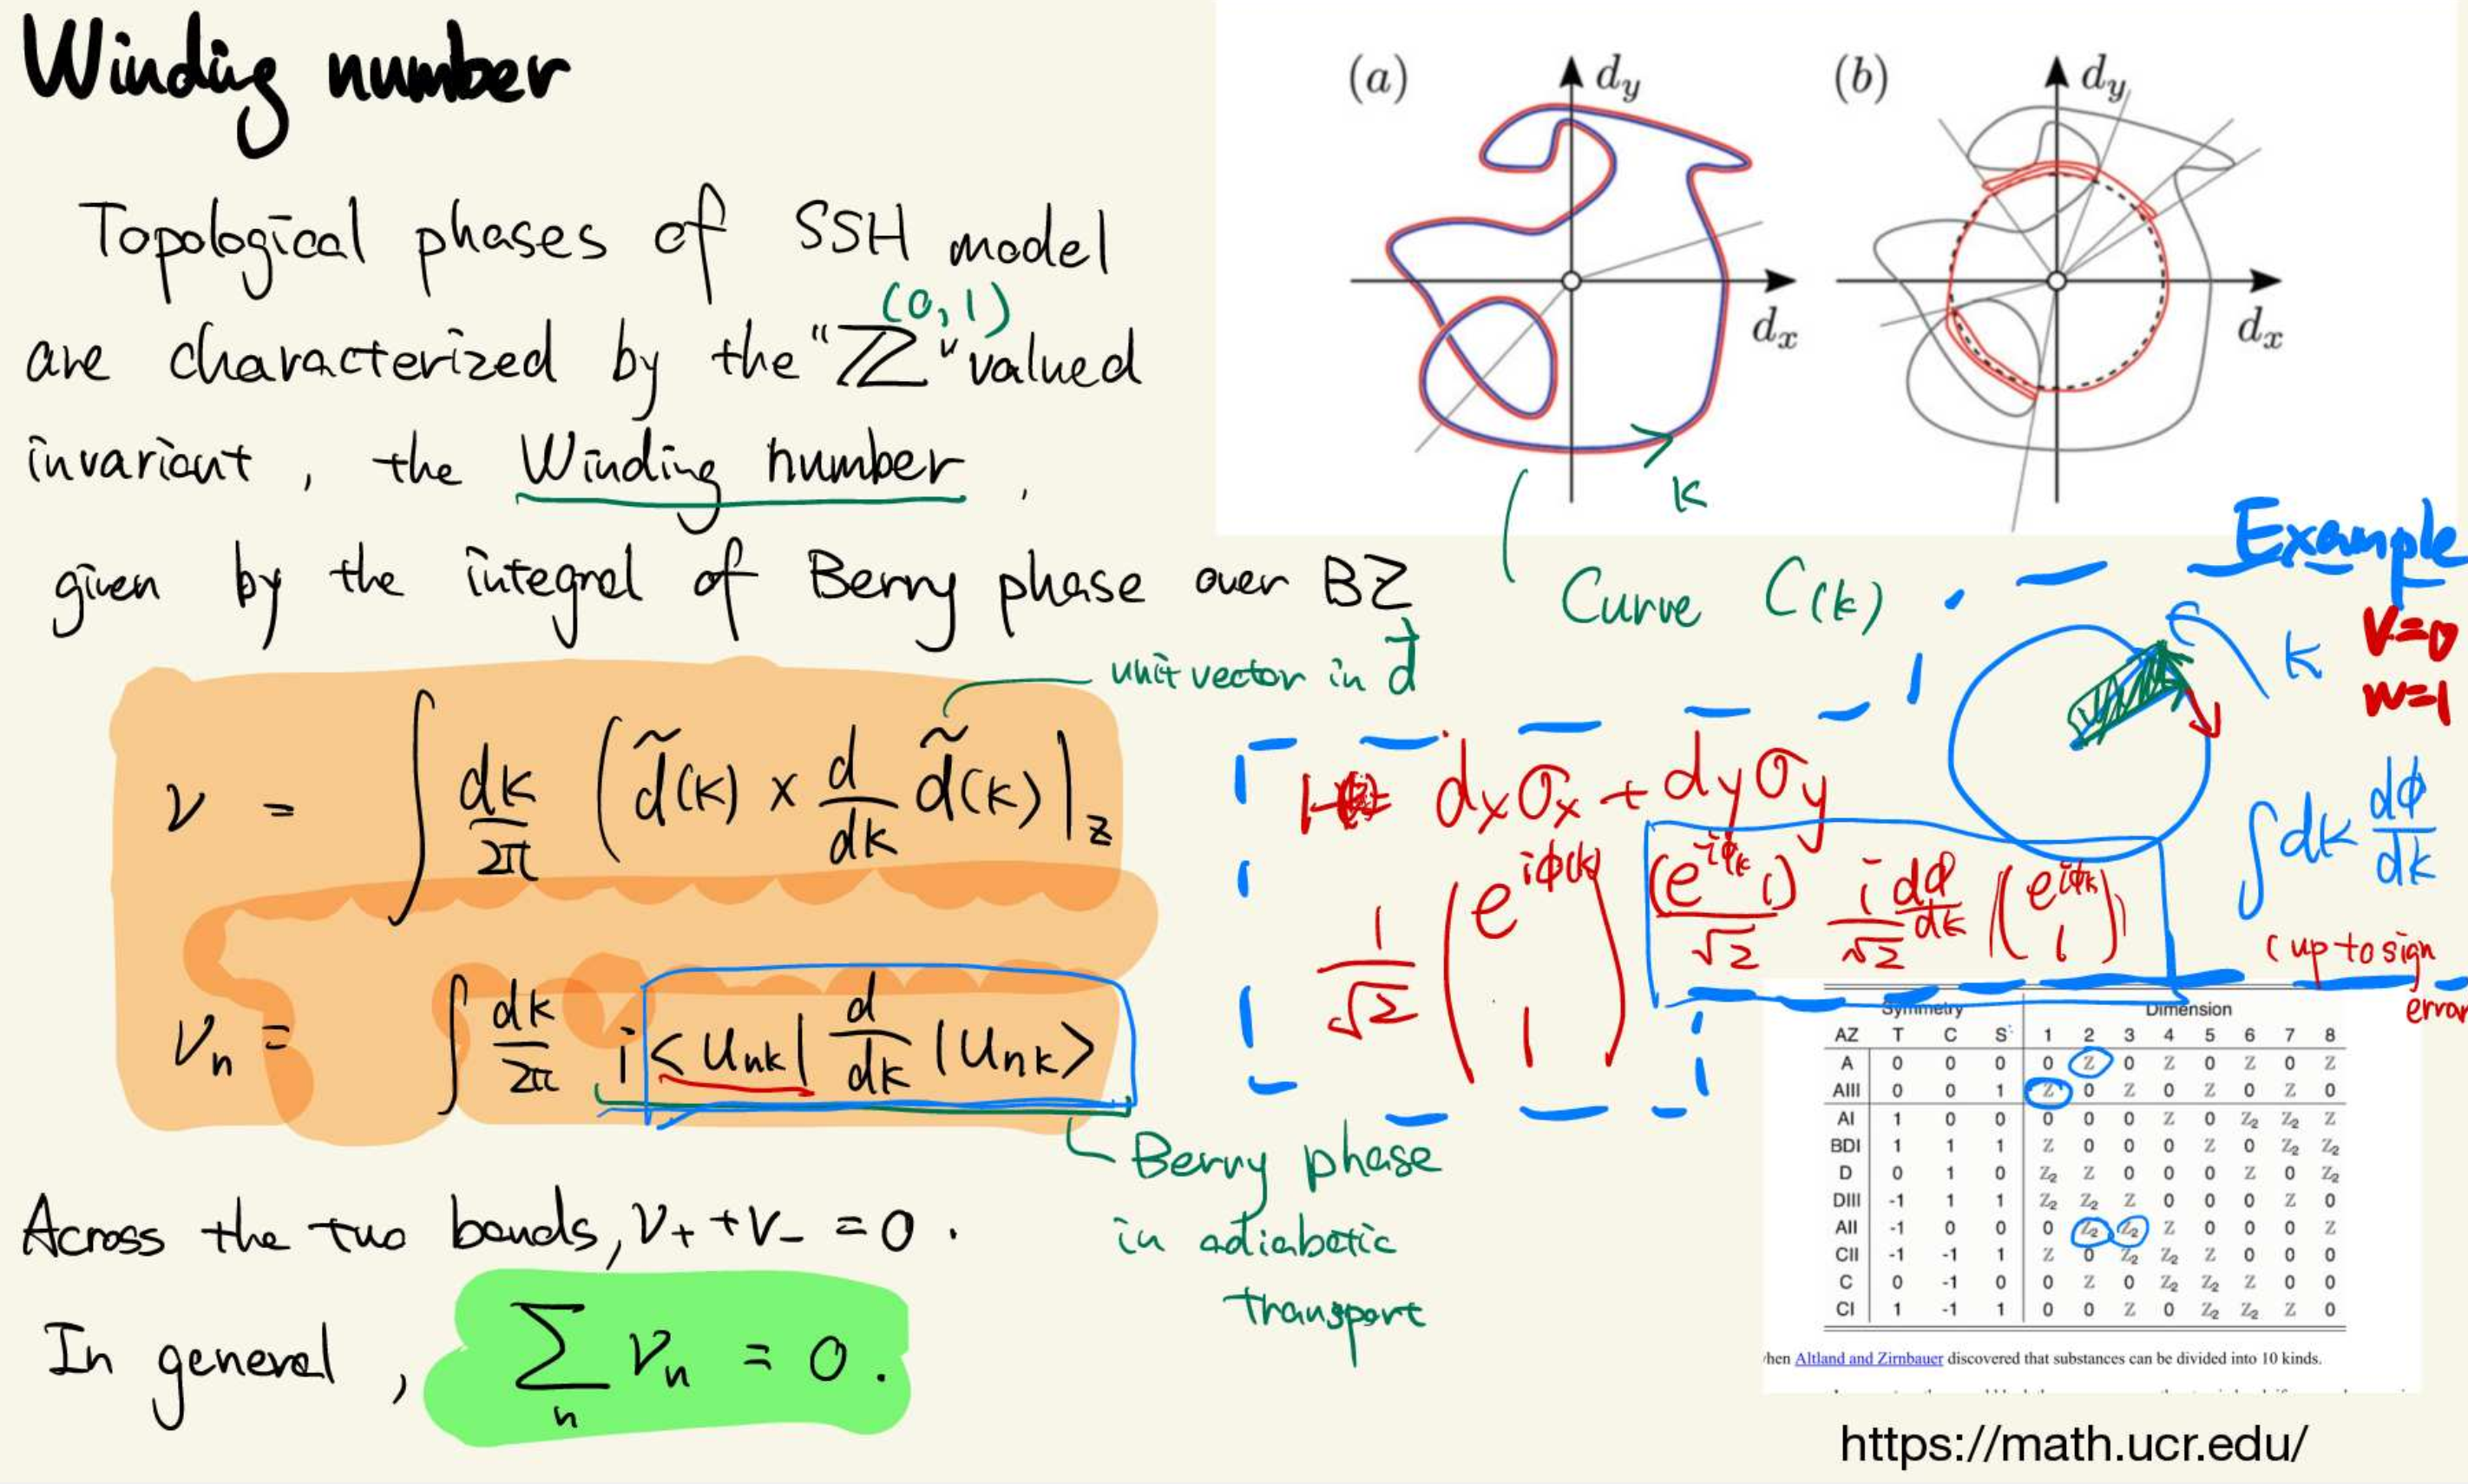 Winding number
Topological phases of SSH model
(0,1)
are characterized by the "ℤ" valued
invariant, the Winding number,
given by the integral of Berry phase over BZ
unit vector in d⃗
ν = ∫ dk/2π (d̃(k) × d/dk d̃(k))|z
νn = ∫ dk/2π i <unk| d/dk |unk>
Berry phase
in adiabatic
transport
Across the two bands, ν+ + ν- = 0.
In general, Σn νn = 0.
(a) dy dx
(b) dy dx
k
Curve C(k)
Example
k
v=0
w=1
dxσx + dyσy
1/√2 (e^iφ(k) 1)
(e^-iφk 1)/√2 i/√2 dφ/dk (e^iφk 1)
∫dk dφ/dk
(up to sign
error
Symmetry Dimension
AZ T C S 1 2 3 4 5 6 7 8
A 0 0 0 0 Z 0 Z 0 Z 0 Z
AIII 0 0 1 Z 0 Z 0 Z 0 Z 0
AI 1 0 0 0 0 0 Z 0 Z2 Z2 Z
BDI 1 1 1 Z 0 0 0 Z 0 Z2 Z2
D 0 1 0 Z2 Z 0 0 0 Z 0 Z2
DIII -1 1 1 Z2 Z2 Z 0 0 0 Z 0
AII -1 0 0 0 Z2 Z2 Z 0 0 0 Z
CII -1 -1 1 Z 0 Z2 Z2 Z 0 0 0
C 0 -1 0 0 Z 0 Z2 Z2 Z 0 0
CI 1 -1 1 0 0 Z 0 Z2 Z2 Z 0
hen Altland and Zirnbauer discovered that substances can be divided into 10 kinds.
https://math.ucr.edu/